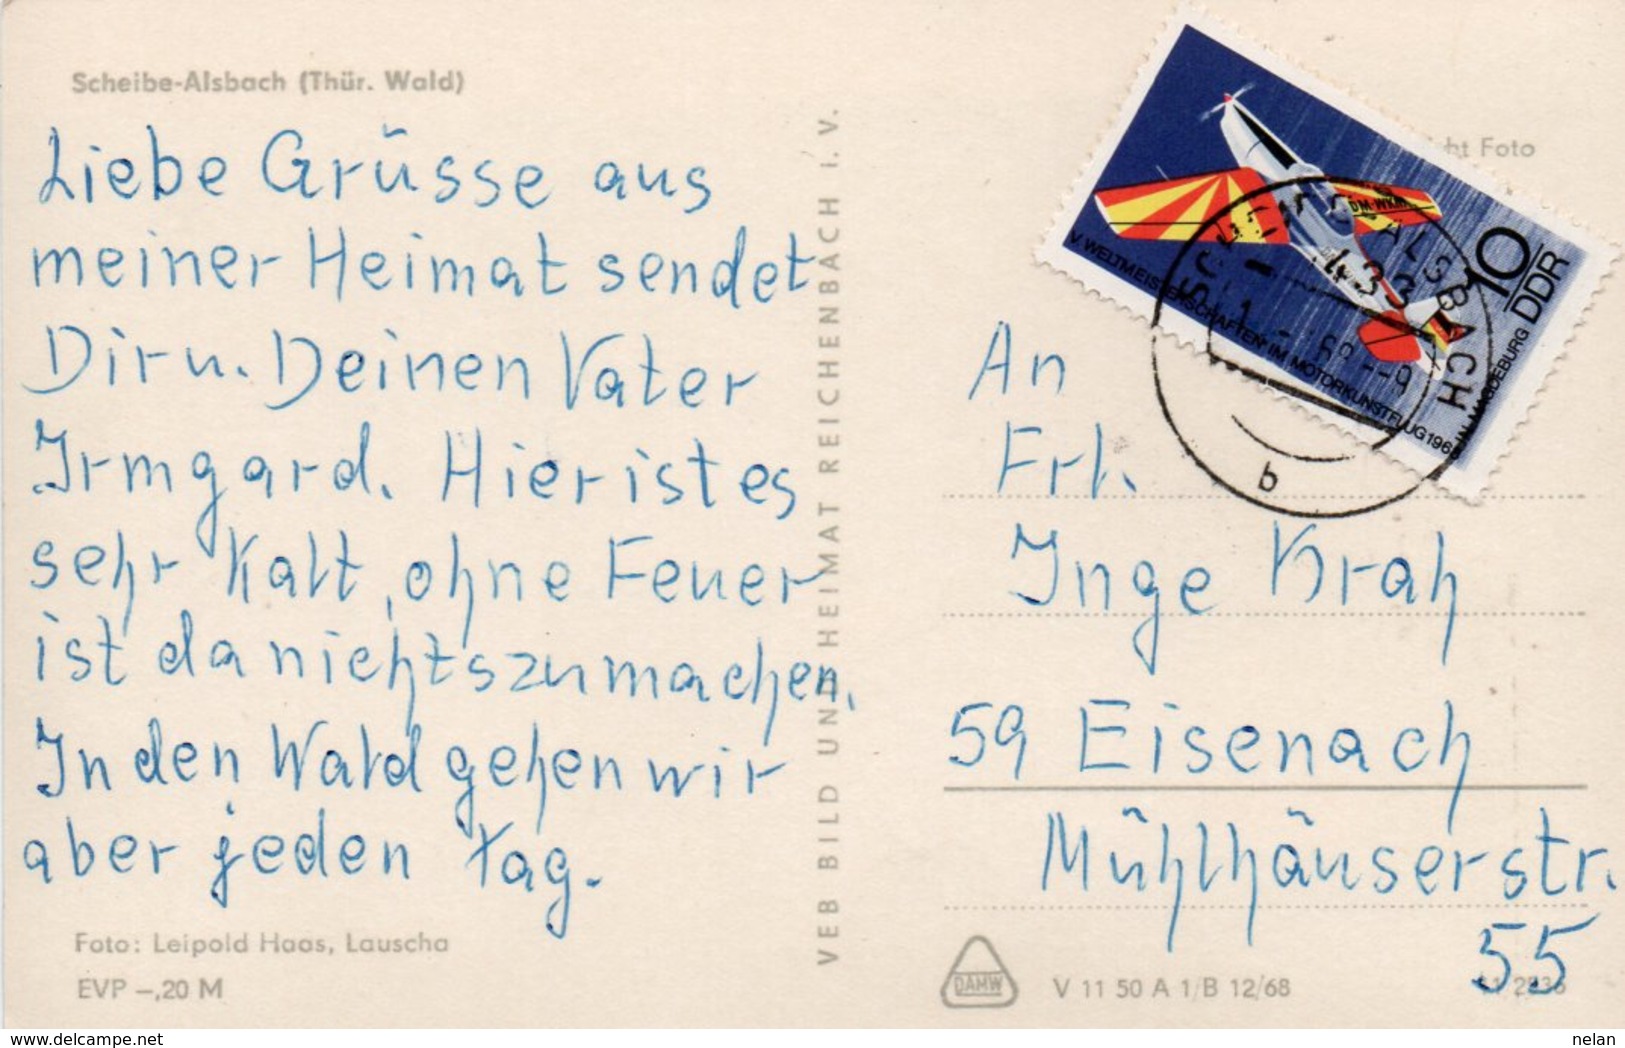 Scheibe-Alsbach (Thür. Wald)
Liebe Grüsse aus
meiner Heimat sendet
Dir u. Deinen Vater
Irmgard. Hier ist es
sehr kalt, ohne Feuer
ist da nichts zu machen.
In den Wald gehen wir
aber jeden Tag.
Foto: Leipold Haas, Lauscha
EVP –,20 M
VEB BILD UND HEIMAT REICHENBACH I. V.
Foto
10 DDR
DM-WKM
V. WELTMEISTERSCHAFTEN IM MOTORKUNSTFLUG 1968 IN MAGDEBURG
ALSBACH
b
An
Frl.
Inge Krah
59 Eisenach
Mühlhäuserstr.
55
DAMW
V 11 50 A 1/B 12/68
nelan
https://www.delcampe.net